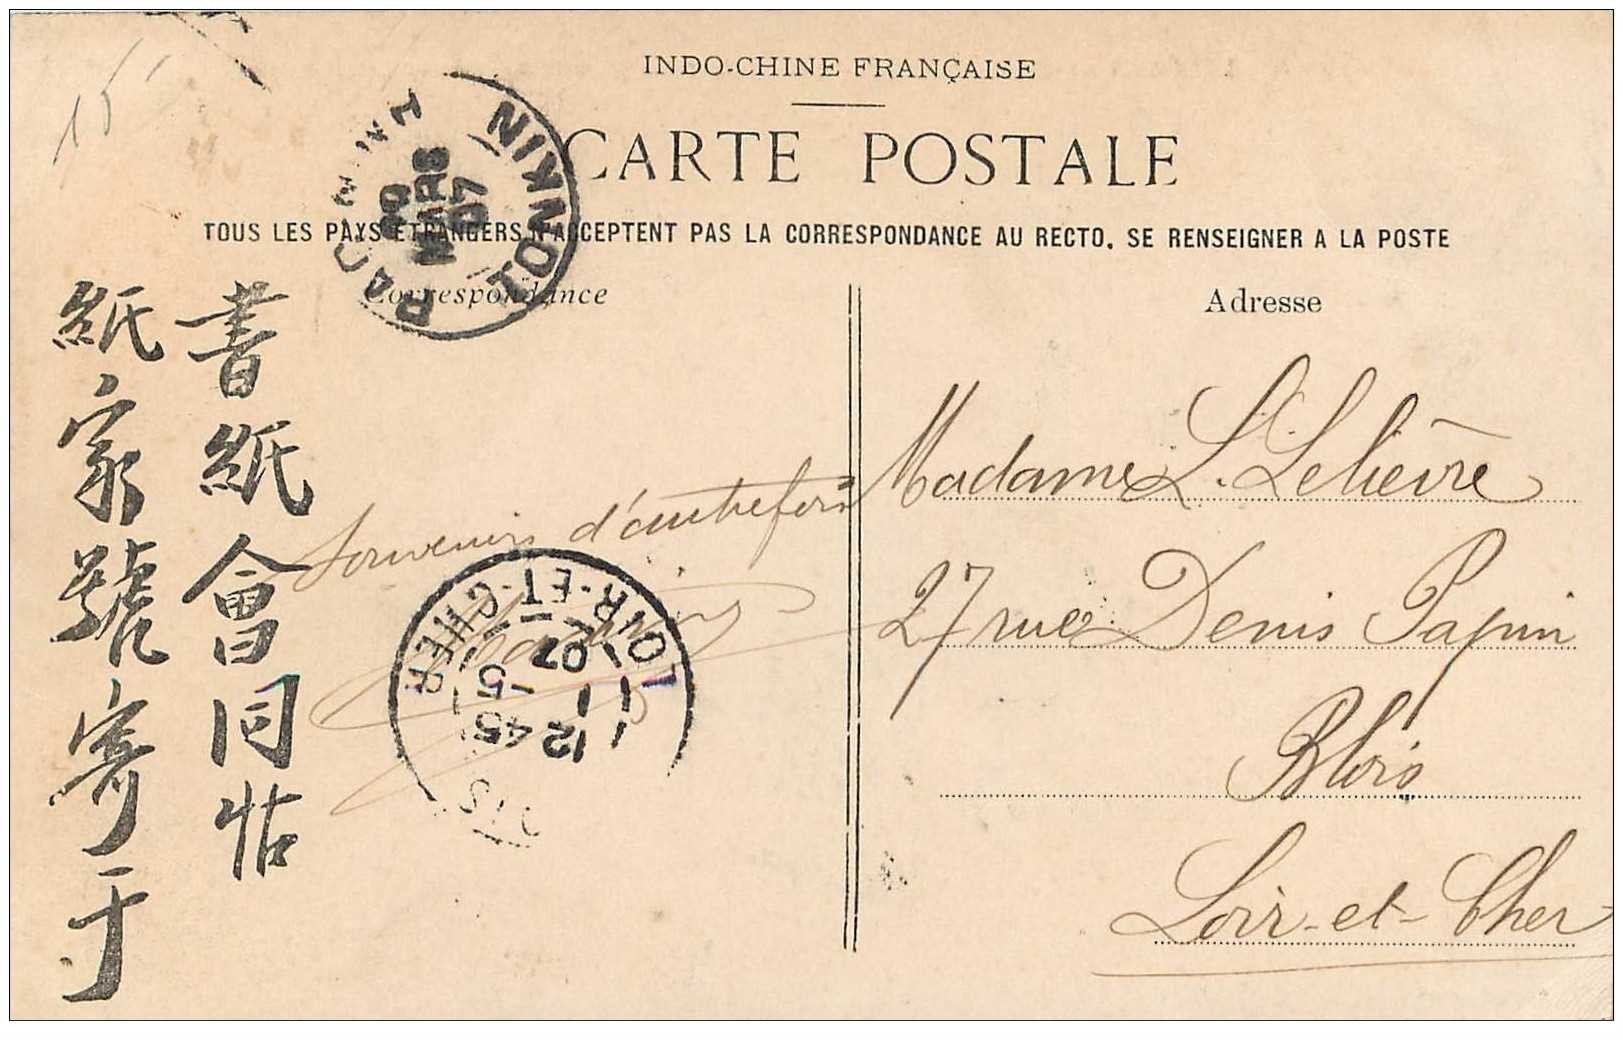 INDO-CHINE FRANÇAISE
CARTE POSTALE
TOUS LES PAYS ETRANGERS N'ACCEPTENT PAS LA CORRESPONDANCE AU RECTO. SE RENSEIGNER A LA POSTE
Correspondance
Adresse
TONKIN
MARS
07
書紙會同帖
紙家號寄于
Souvenirs d'autrefois
Madame L. Lelièvre
27 rue Denis Papin
Blois
Loir-et-Cher
LOIR-ET-CHER
12 45
5
07